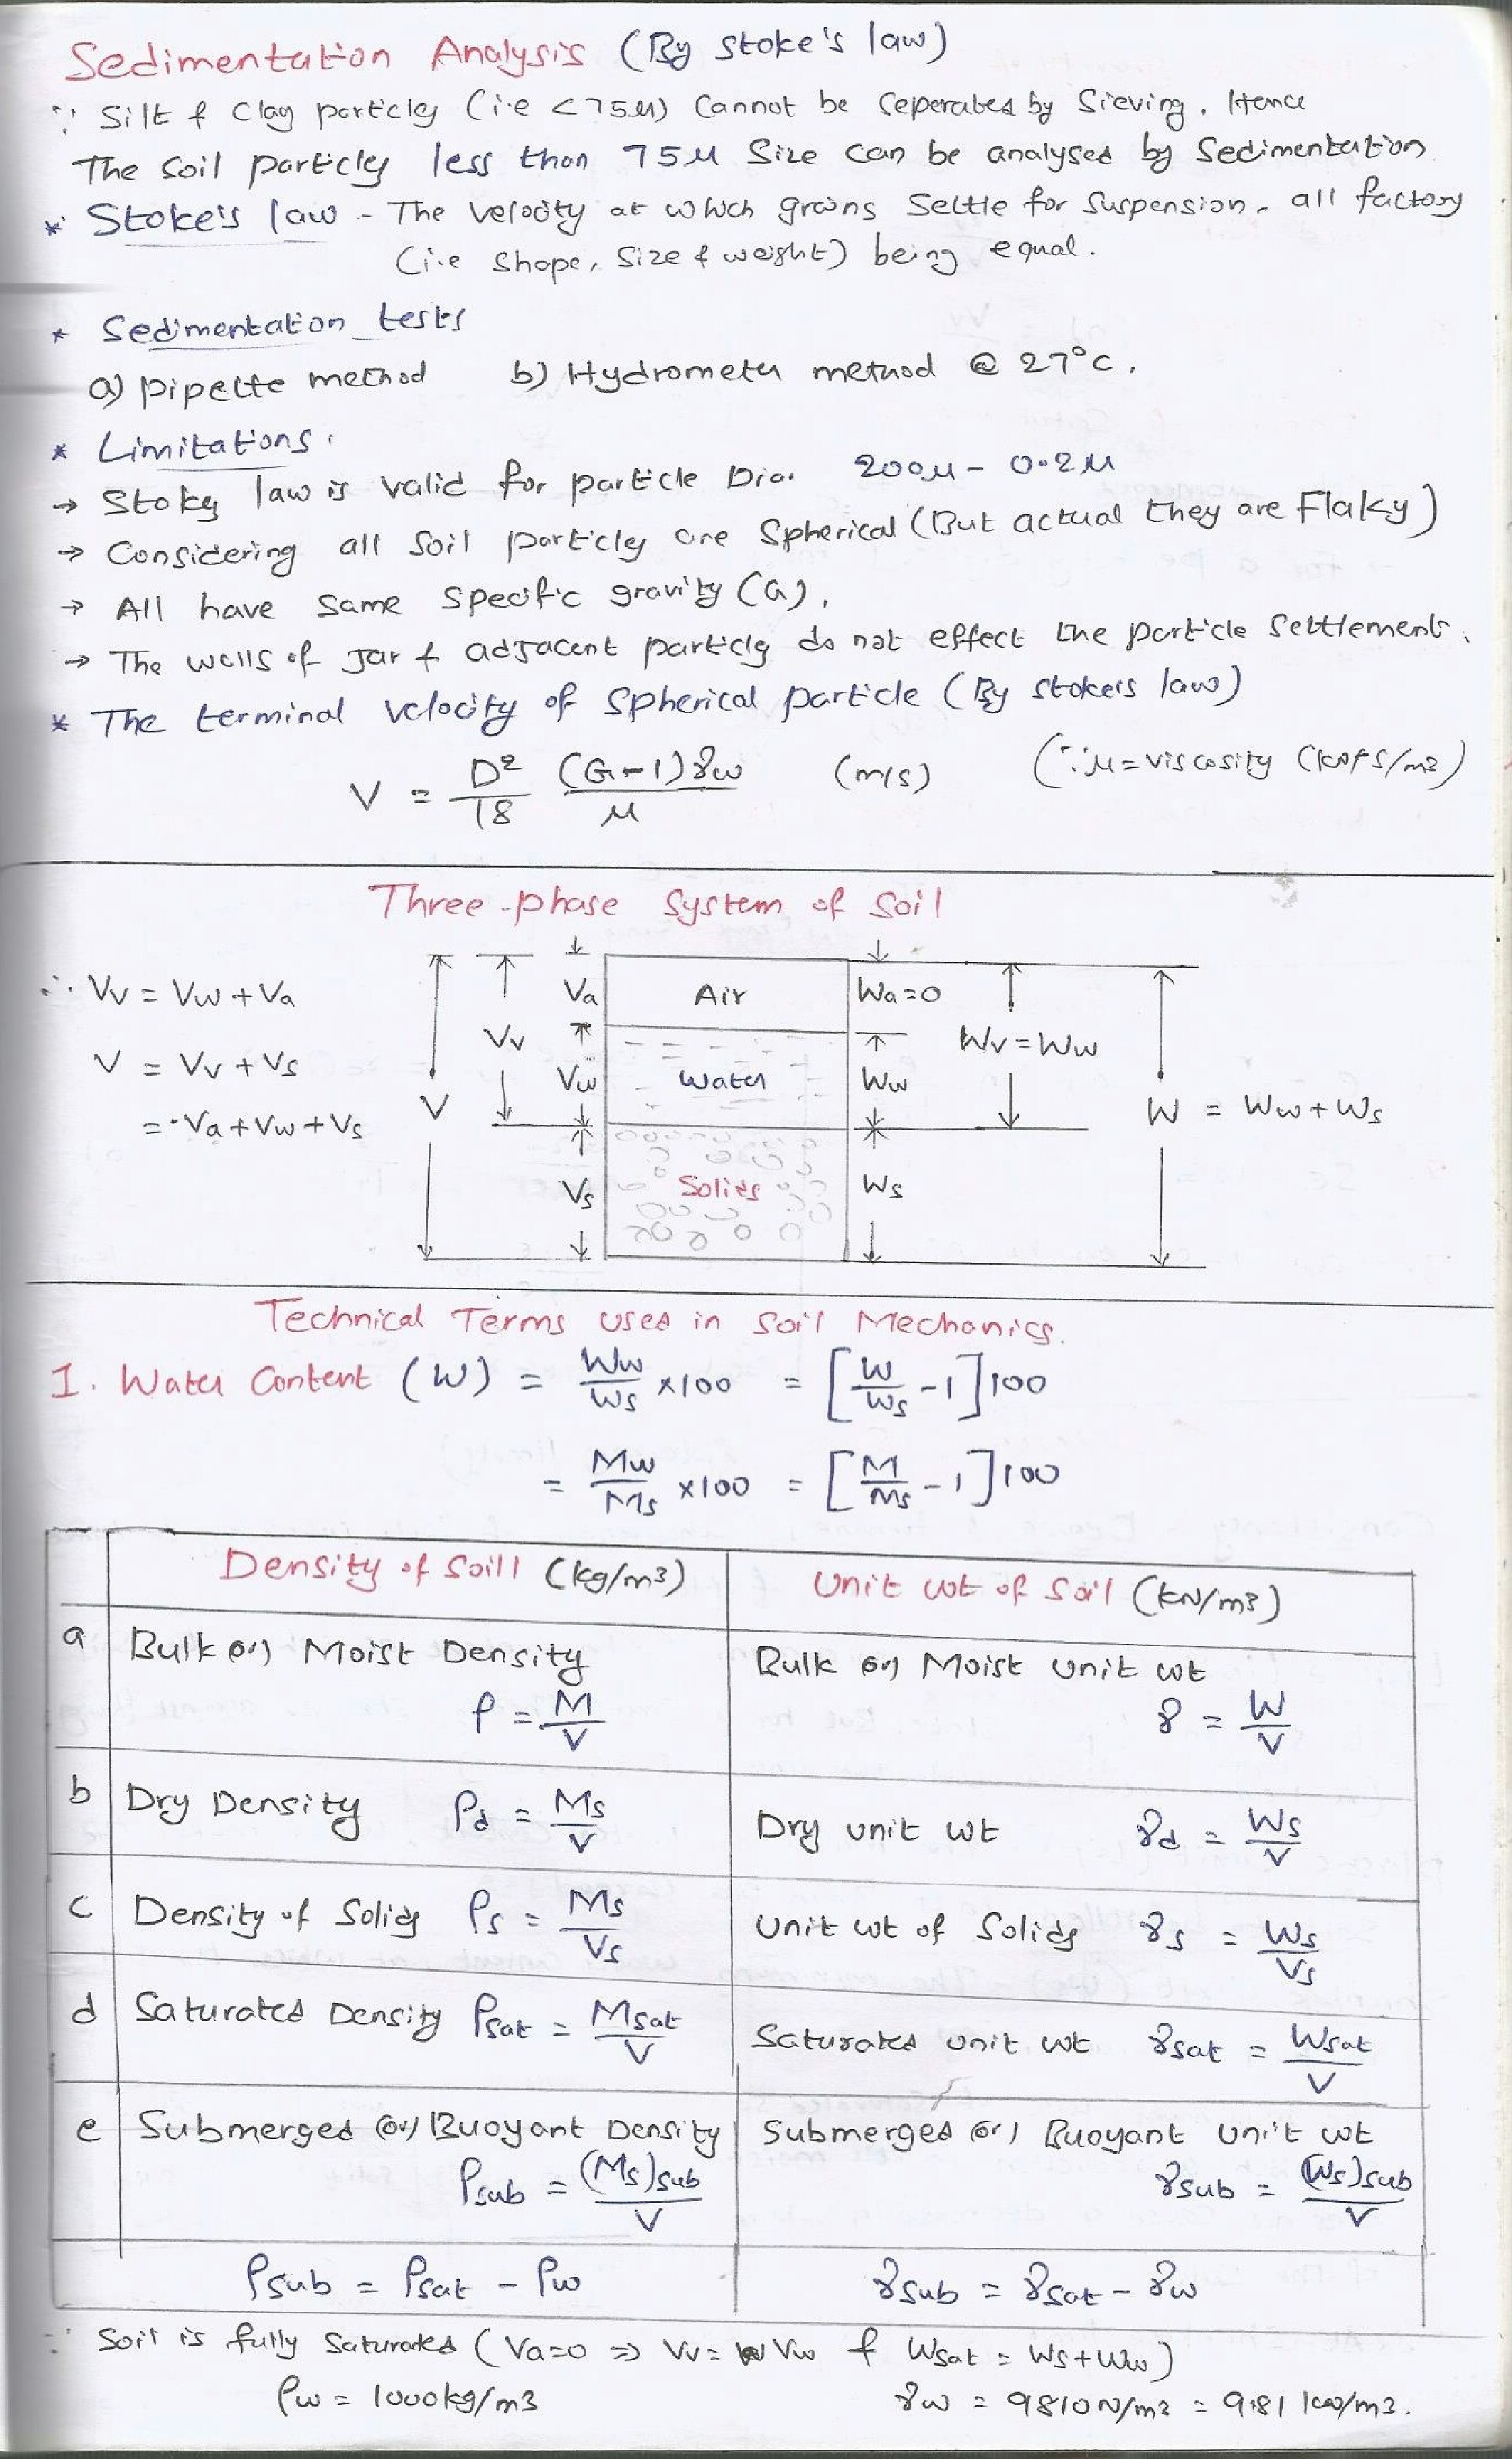 Sedimentation Analysis (By Stoke's law)
∵ Silt & Clay particles (i.e <75μ) Cannot be Seperated by Sieving. Hence
The Soil particles less than 75μ Size can be analysed by Sedimentation
* Stoke's law - The velocity at which grains Settle for Suspension, all factors
(i.e Shape, Size & weight) being equal.
* Sedimentation tests
a) pipette method b) Hydrometer method @ 27°C.
* Limitations.
→ Stokes law is valid for particle Dia. 200μ - 0.2μ
→ Considering all Soil particles are Spherical (But actual they are Flaky)
→ All have same specific gravity (G).
→ The walls of Jar & adjacent particles do not effect the particle Settlement.
* The terminal velocity of Spherical particle (By stoke's law)
V = D²/18 (G-1)γw/μ (m/s) (∵ μ = viscosity (kN-S/m2)
Three-phase System of Soil
∴ Vv = Vw + Va
V = Vv + Vs
= Va + Vw + Vs
V Vv Va Air Wa=0
Vw Water Ww Wv = Ww
Vs Solids Ws W = Ww + Ws
Technical Terms used in Soil Mechanics.
1. Water Content (W) = Ww/Ws ×100 = [W/Ws -1]100
= Mw/Ms ×100 = [M/Ms -1]100
Density of Soill (kg/m3) Unit wt of Soil (kN/m3)
a Bulk (or) Moist Density ρ = M/V Bulk (or) Moist unit wt γ = W/V
b Dry Density ρd = Ms/V Dry unit wt γd = Ws/V
c Density of Solids ρs = Ms/Vs Unit wt of Solids γs = Ws/Vs
d Saturated Density ρsat = Msat/V Saturated unit wt γsat = Wsat/V
e Submerged (or) Buoyant Density ρsub = (Ms)sub/V Submerged (or) Buoyant Unit wt γsub = (Ws)sub/V
ρsub = ρsat - ρw γsub = γsat - γw
∵ Soil is fully Saturated (Va=0 ⇒ Vv= Vw & Wsat = Ws+Ww)
ρw = 1000kg/m3 γw = 9810N/m3 = 9.81 kN/m3.